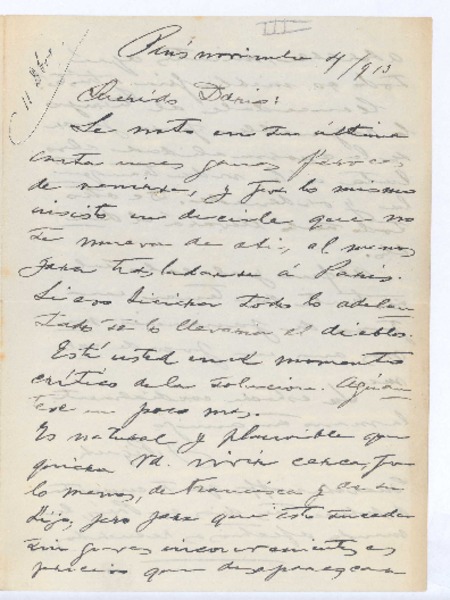 III
París noviembre 4/913
Querido Darío:
Se nota en su última
carta unas ganas feroces
de venirse, y por lo mismo
insisto en decirle que no
se mueva de ahí, al menos
para trasladarse á París.
Si eso hiciera todo lo adelan
tado se lo llevaría el diablo.
Está usted en el momento
crítico de la solucion. Aguán
tese un poco mas.
Es natural y plausible que
quiera Vd. vivir cerca, por
lo menos, de Francisca y de su
hijo, pero para que esto suceda
sin graves inconvenientes es
preciso que desaparezcan